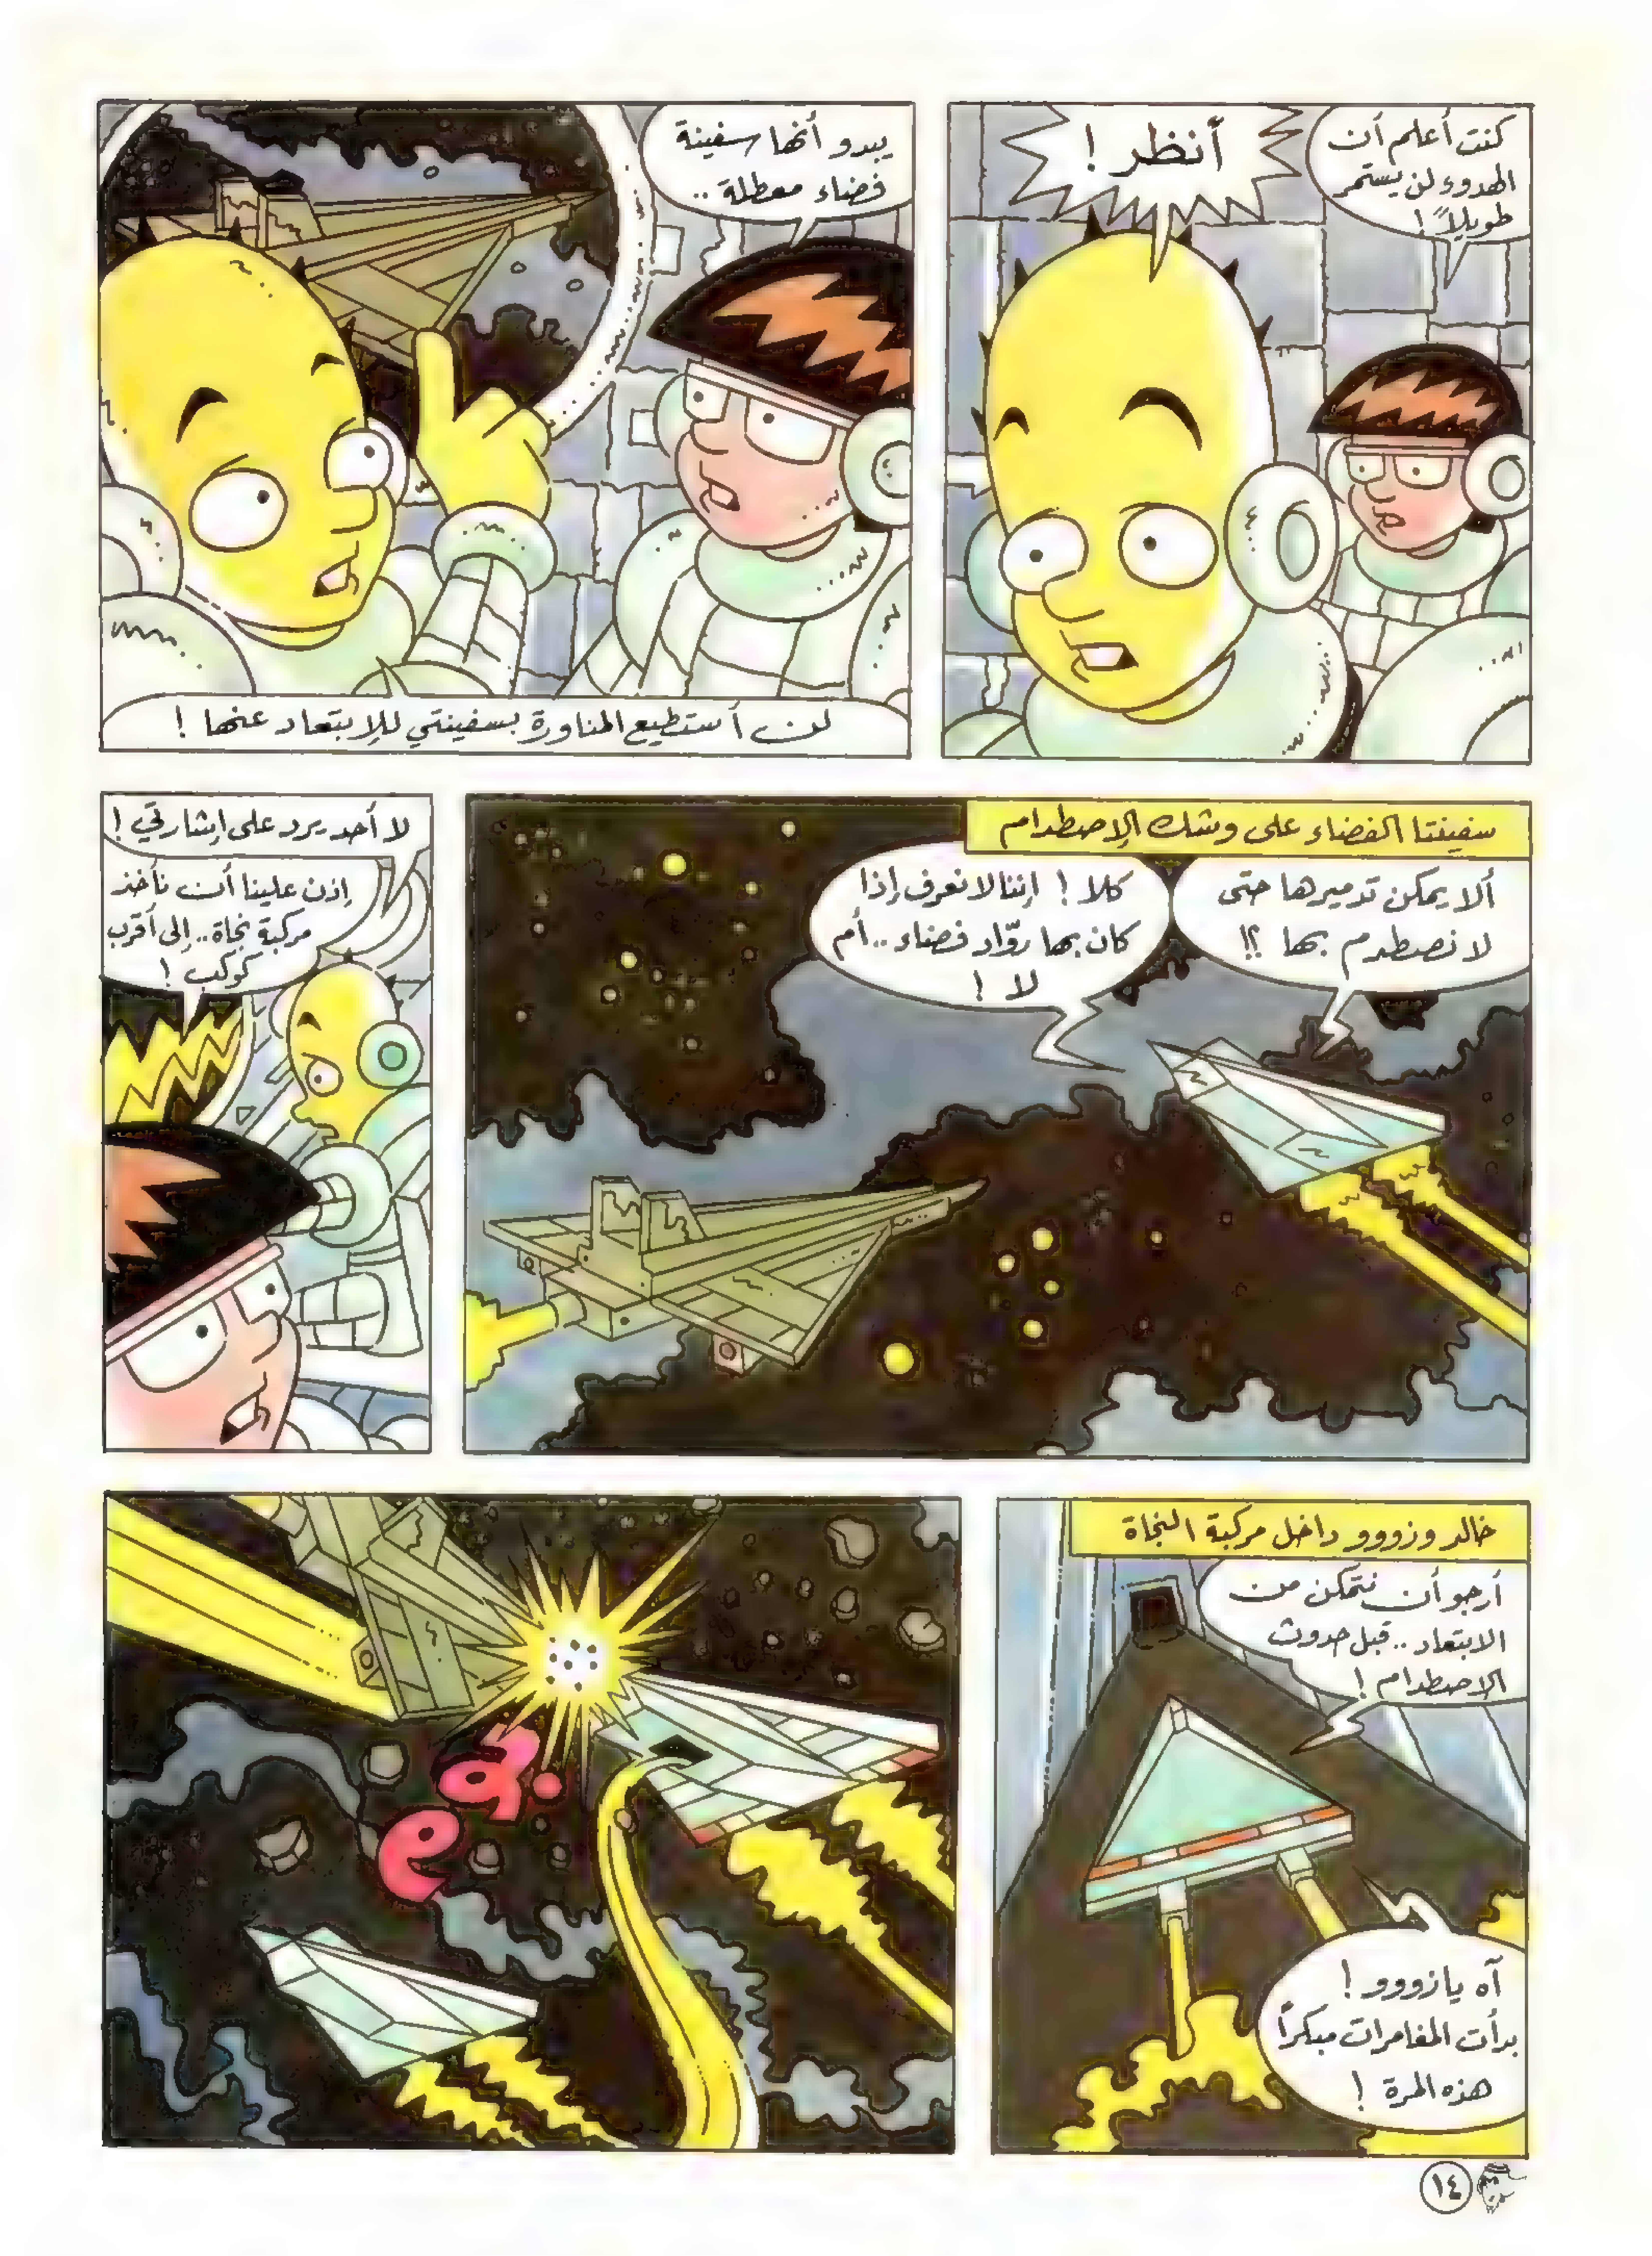 كنت أعلم أن
الهدوء لن يستمر
طويلاً !
أنظر !
يبدو أنها سفينة
فضاء معطلة ..
لن أستطيع المناورة بسفينتي للإبتعاد عنها !
سفينتا الفضاء على وشك الإصطدام
ألا يمكن تدميرها حتى
لا نصطدم بها ؟!
كلا ! إننا لا نعرف إذا
كان بها روّاد فضاء .. أم
لا !
لا أحد يرد على إشارتي !
إذن علينا أن نأخذ
مركبة نجاة .. إلى أقرب
كوكب !
خالد وزووو داخل مركبة النجاة
أرجو أن نتمكن من
الابتعاد .. قبل حدوث
الاصطدام !
آه يا زووو !
بدأت المغامرات مبكراً
هذه المرة !
١٤